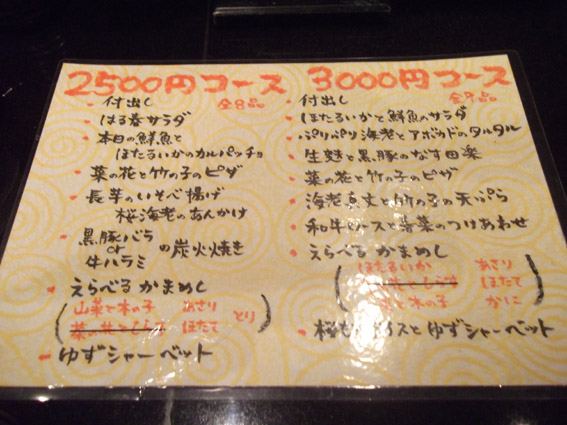 2500円コース
全8品
・付出し
・はる春サラダ
・本日の鮮魚と
ほたるいかのカルパッチョ
・菜の花と竹の子のピザ
・長芋のいそべ揚げ
桜海老のあんかけ
・黒豚バラ
or
牛ハラミ
の炭火焼き
・えらべる かまめし
山菜と木の子 あさり とり
ほたて
・ゆずシャーベット
3000円コース
全9品
・付出し
・ほたるいかと鮮魚のサラダ
・ぷりぷり海老とアボカドのタルタル
・生麩と黒豚のなす田楽
・菜の花と竹の子のピザ
・海老真丈と竹の子の天ぷら
・和牛ロースと春菜のつけあわせ
・えらべる かまめし
ほたるいか あさり
ほたて
と木の子 かに
・桜もアイスとゆずシャーベット